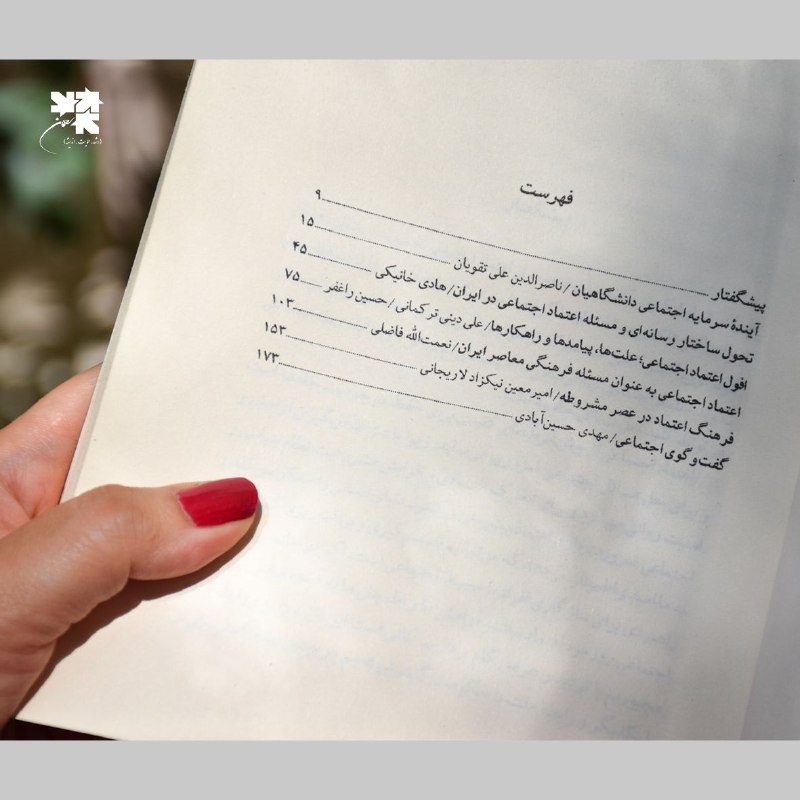 فهرست
پیشگفتار ........ ۹
آیندهٔ سرمایه اجتماعی دانشگاهیان/ ناصرالدین علی تقویان ........ ۱۵
تحول ساختار رسانه‌ای و مسئله اعتماد اجتماعی در ایران/ هادی خانیکی ........ ۴۵
افول اعتماد اجتماعی؛ علت‌ها، پیامدها و راهکارها/ علی دینی ترکمانی/ حسین راغفر ........ ۷۵
اعتماد اجتماعی به عنوان مسئله فرهنگی معاصر ایران/ نعمت‌الله فاضلی ........ ۱۰۳
فرهنگ اعتماد در عصر مشروطه/ امیرمعین نیکزاد لاریجانی ........ ۱۵۳
گفت‌وگوی اجتماعی/ مهدی حسین‌آبادی ........ ۱۷۳